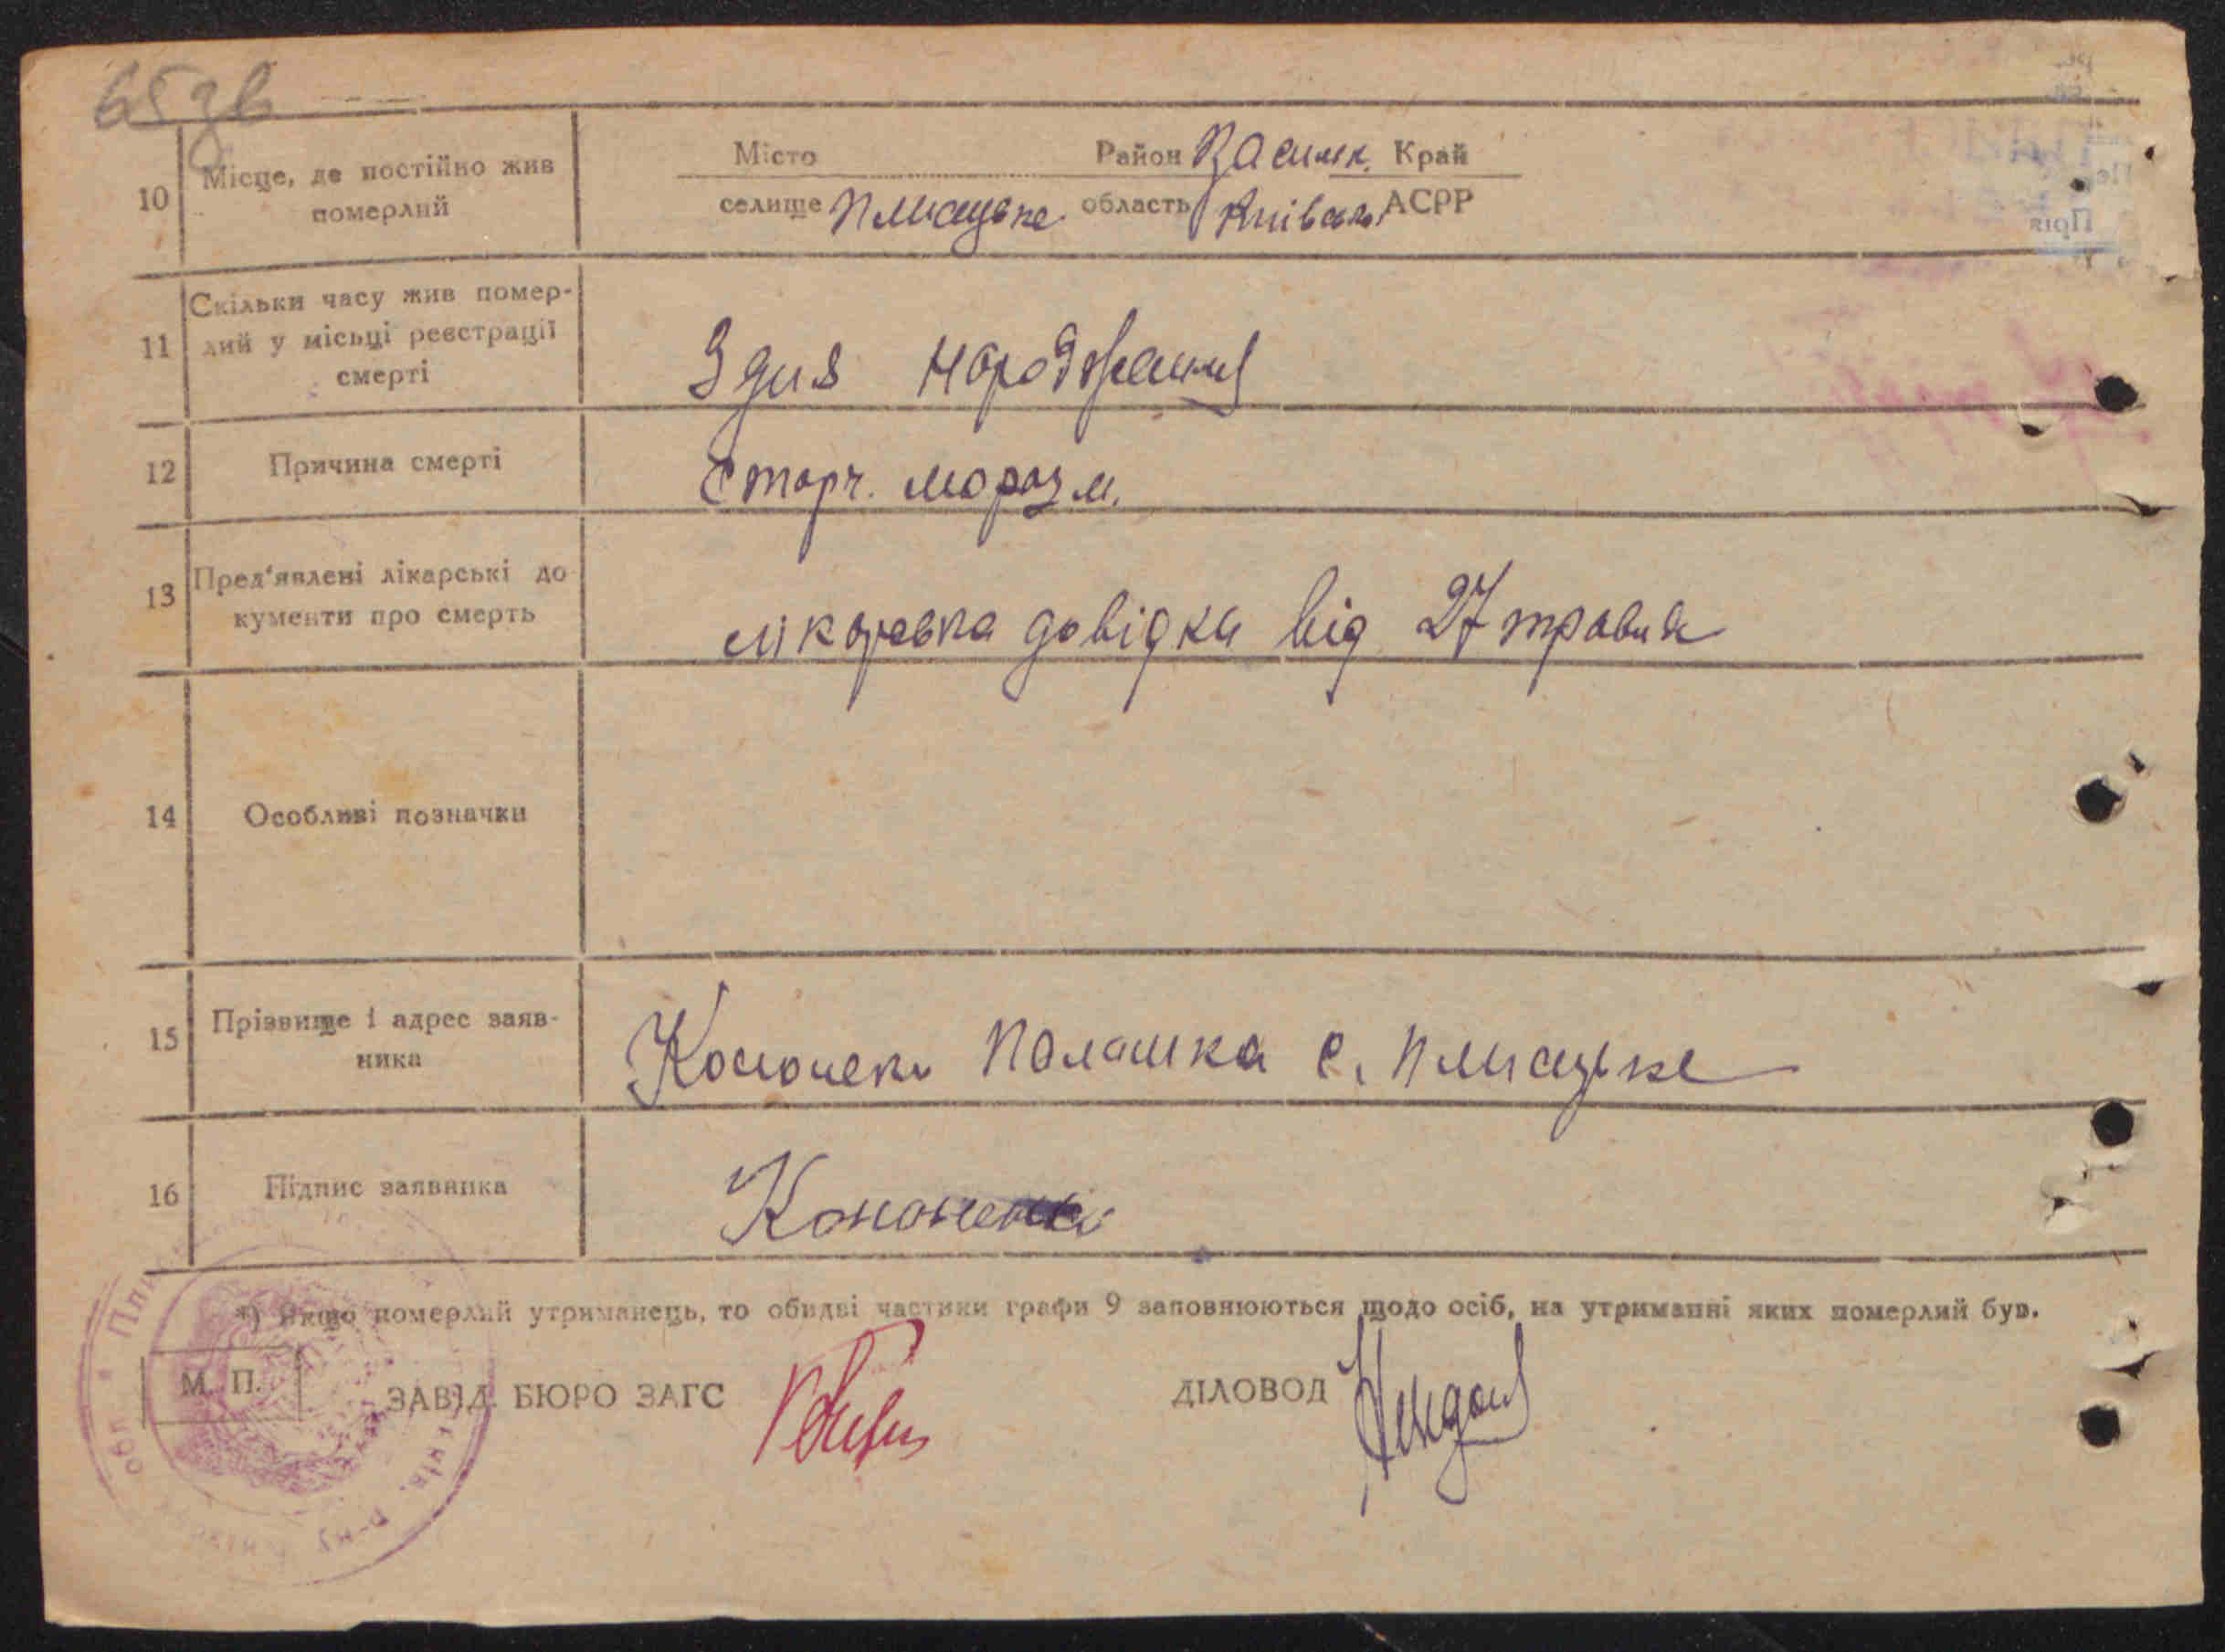 65 зв
10 Місце, де постійно жив померлий
Місто Район Васильк. Край
селище Плисецьке область Київськ. АСРР
11 Скільки часу жив помер-
лий у місьці реєстрації
смерті
З дня народження
12 Причина смерті
Старч. моразм.
13 Пред'явлені лікарські до
кументи про смерть
лікарська довідка від 27 травня
14 Особливі позначки
15 Прізвище і адрес заяв-
ника
Кононенко Палашка с. Плисецьке
16 Підпис заявника
Кононенко
*) Якщо померлий утриманець, то обидві частини графи 9 заповнюються щодо осіб, на утриманні яких померлий був.
М. П.
ЗАВІД. БЮРО ЗАГС
ДІЛОВОД